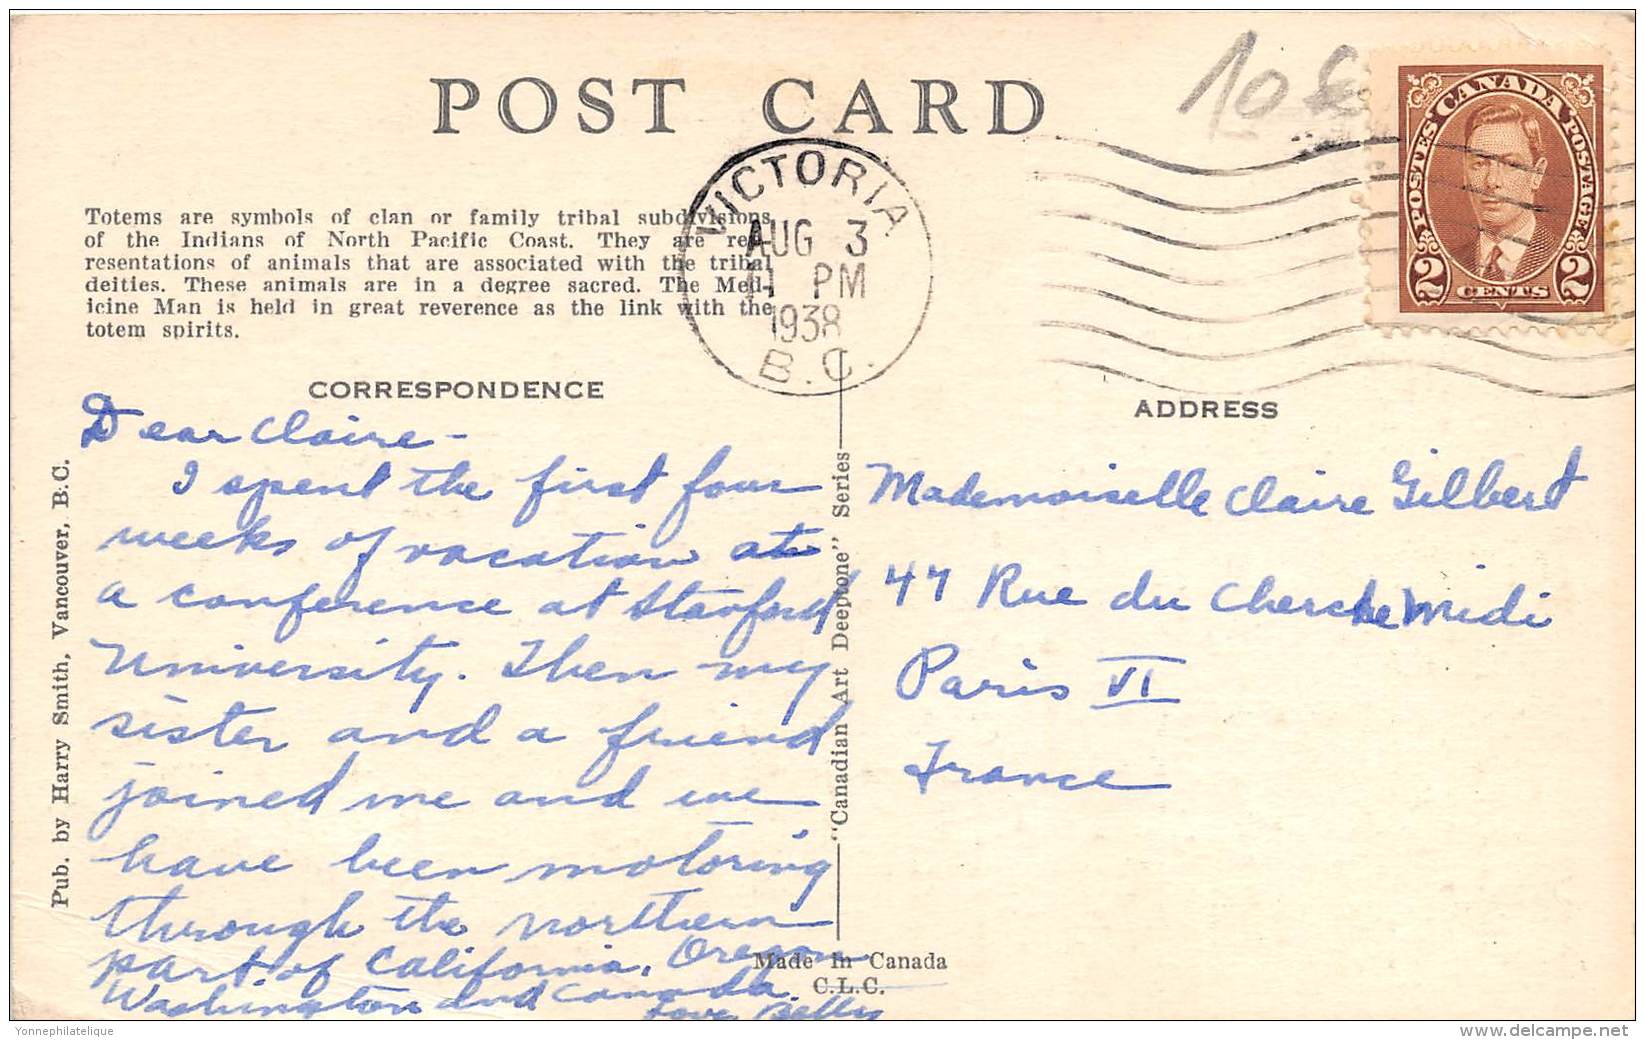 POST CARD
10 €
CANADA
POSTES POSTAGE
2 CENTS 2
VICTORIA
AUG 3
PM
1938
B.C.
Totems are symbols of clan or family tribal subdivisions
of the Indians of North Pacific Coast. They are rep-
resentations of animals that are associated with the tribal
deities. These animals are in a degree sacred. The Med-
icine Man is held in great reverence as the link with the
totem spirits.
CORRESPONDENCE
Dear Claire -
I spent the first four
weeks of vacation at
a conference at Stanford
University. Then my
sister and a friend
joined me and we
have been motoring
through the northern
part of California, Oregon
Washington and Canada.
Love Betty
Pub. by Harry Smith, Vancouver, B.C.
"Canadian Art Deeptone" Series
ADDRESS
Mademoiselle Claire Gilbert
47 Rue du Cherche Midi
Paris VI
France
Made in Canada
C.L.C.
Yonnephilatelique
delcampe.net